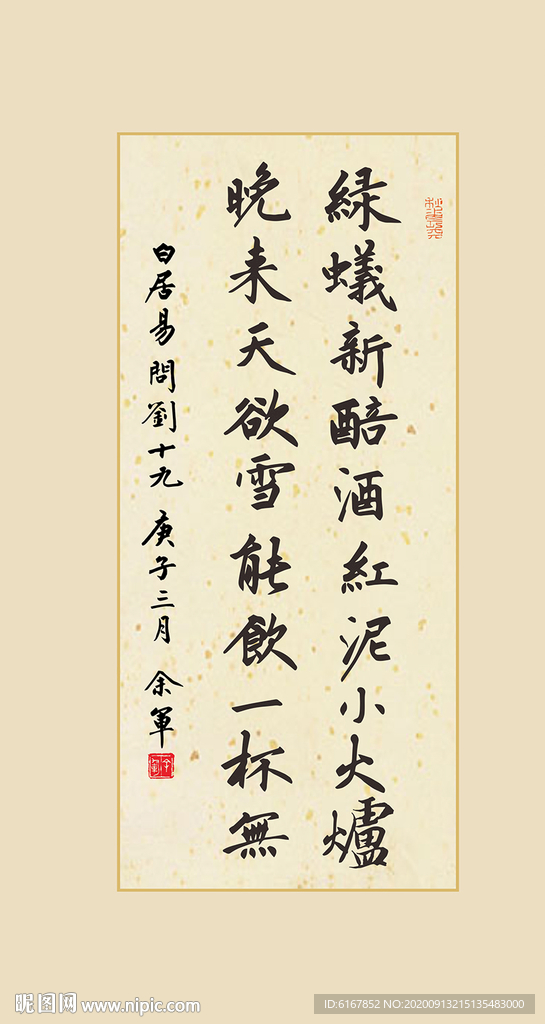 緑蟻新醅酒紅泥小火爐
晚来天欲雪能飲一杯無
白居易問劉十九 庚子三月 余軍
昵图网 www.nipic.com
ID:6167852 NO:20200913215135483000